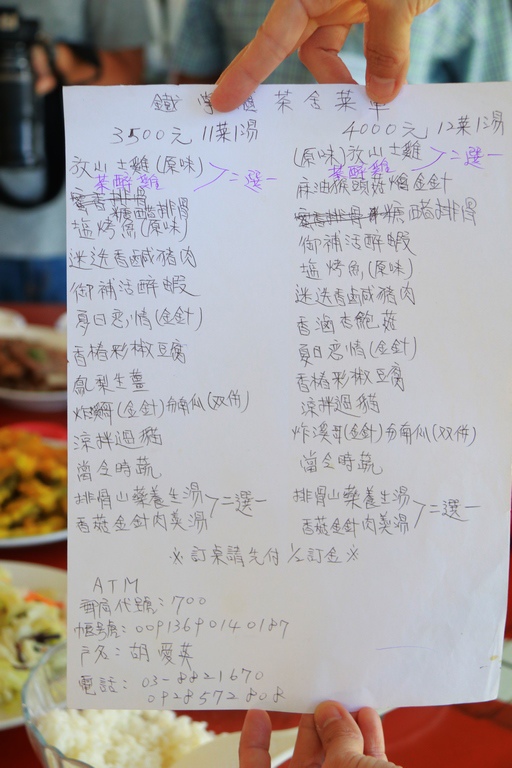 鐵 茶舍菜單
3500元 11菜1湯
放山土雞(原味)
茶醉雞 >二選一
蜜香排骨
糖醋排骨
塩烤魚(原味)
迷迭香鹹豬肉
御補活醉蝦
夏日戀情(金針)
香椿彩椒豆腐
鳳梨生薑
炸 (金針)南瓜(双併)
涼拌過貓
當令時蔬
排骨山藥養生湯
香菇金針肉羹湯 >二選一
4000元 12菜1湯
(原味)放山土雞
茶醉雞 >二選一
麻油猴頭菇 金針
蜜香排骨 糖醋排骨
御補活醉蝦
塩烤魚(原味)
迷迭香鹹豬肉
香滷杏鮑菇
夏日戀情(金針)
香椿彩椒豆腐
涼拌過貓
炸溪哥(金針)南瓜(双併)
當令時蔬
排骨山藥養生湯
香菇金針肉羹湯 >二選一
※訂桌請先付1/2訂金※
ATM
郵局代號:700
帳號:00913690140187
戶名:胡愛英
電話:03-8821670
0928572808